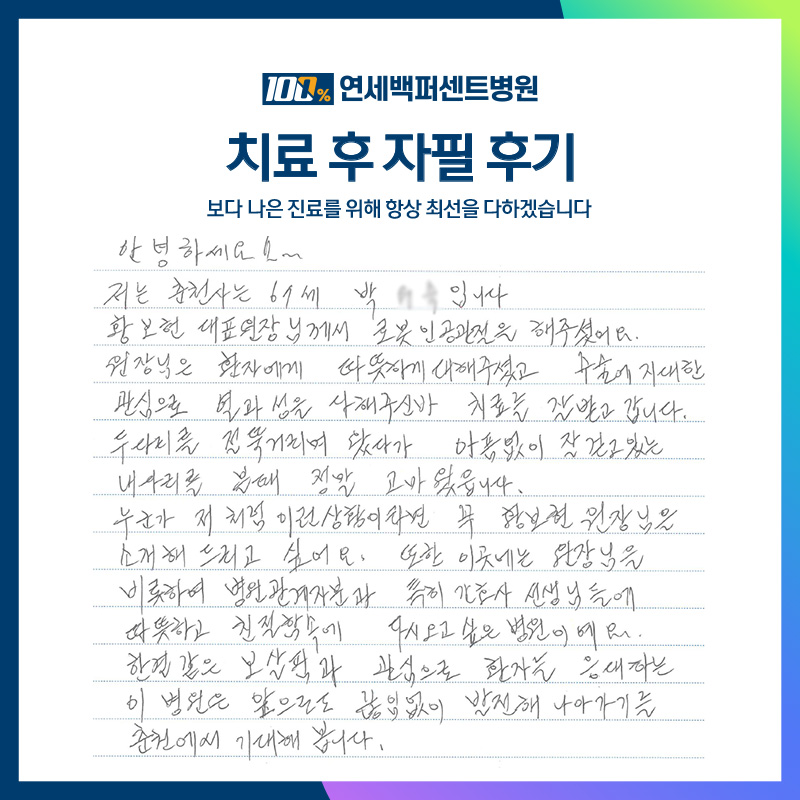 100% 연세백퍼센트병원
치료 후 자필 후기
보다 나은 진료를 위해 항상 최선을 다하겠습니다
안녕하세요오~
저는 춘천사는 69세 박 입니다
황보현 대표원장님께서 로봇인공관절을 해주셨어요.
원장님은 환자에게 따뜻하게 대해주셨고 수술에 지대한
관심으로 열과 성을 다해주신바 치료를 잘받고 갑니다.
두다리를 절뚝거리며 왔다가 아픔없이 잘 걷고있는
내다리를 볼때 정말 고마웠습니다.
누군가 저처럼 이런상황이라면 꼭 황보현 원장님을
소개해 드리고 싶어요. 또한 이곳에는 원장님을
비롯하여 병원관계자분과 특히 간호사 선생님들에
따뜻하고 친절함속에 다시오고싶은 병원이예요.
한결같은 보살핌과 관심으로 환자를 응대하는
이 병원은 앞으로도 끊임없이 발전해 나아가기를
춘천에서 기대해 봅니다.